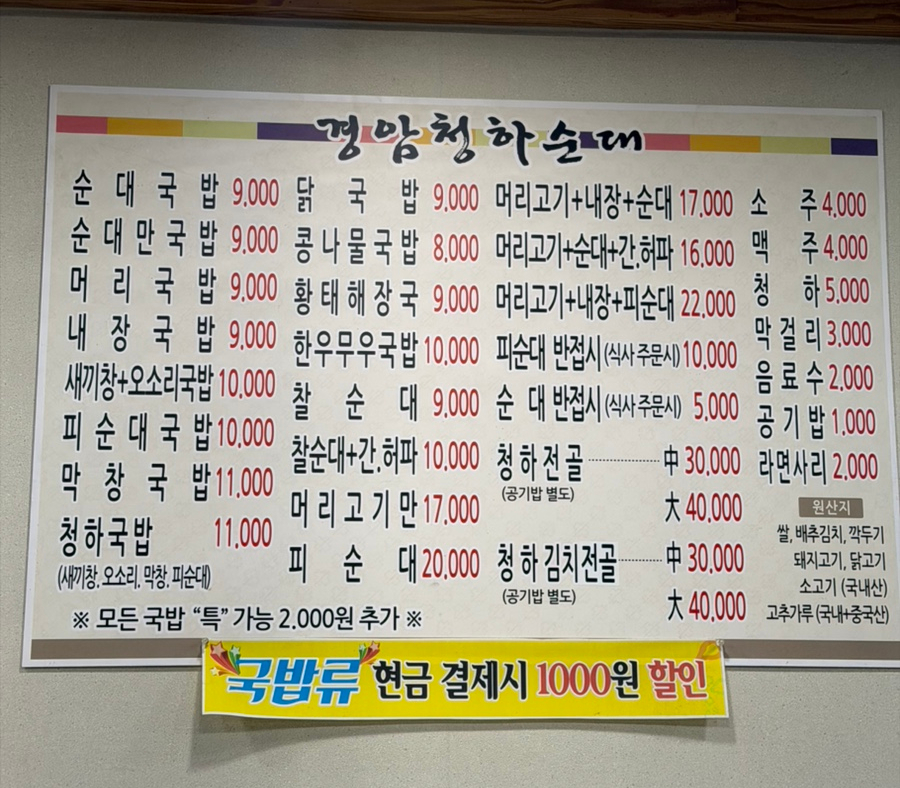 경암청하순대
순대국밥 9,000
순대만국밥 9,000
머리국밥 9,000
내장국밥 9,000
새끼창+오소리국밥 10,000
피순대국밥 10,000
막창국밥 11,000
청하국밥 11,000
(새끼창, 오소리, 막창, 피순대)
닭국밥 9,000
콩나물국밥 8,000
황태해장국 9,000
한우무우국밥 10,000
찰순대 9,000
찰순대+간.허파 10,000
머리고기만 17,000
피순대 20,000
머리고기+내장+순대 17,000
머리고기+순대+간.허파 16,000
머리고기+내장+피순대 22,000
피순대 반접시(식사 주문시) 10,000
순대 반접시(식사 주문시) 5,000
청하전골 中 30,000
(공기밥 별도)
大 40,000
청하김치전골 中 30,000
(공기밥 별도)
大 40,000
소주 4,000
맥주 4,000
청하 5,000
막걸리 3,000
음료수 2,000
공기밥 1,000
라면사리 2,000
원산지
쌀, 배추김치, 깍두기
돼지고기, 닭고기
소고기 (국내산)
고추가루 (국내+중국산)
※ 모든 국밥 “특” 가능 2.000원 추가 ※
국밥류 현금 결제시 1000원 할인